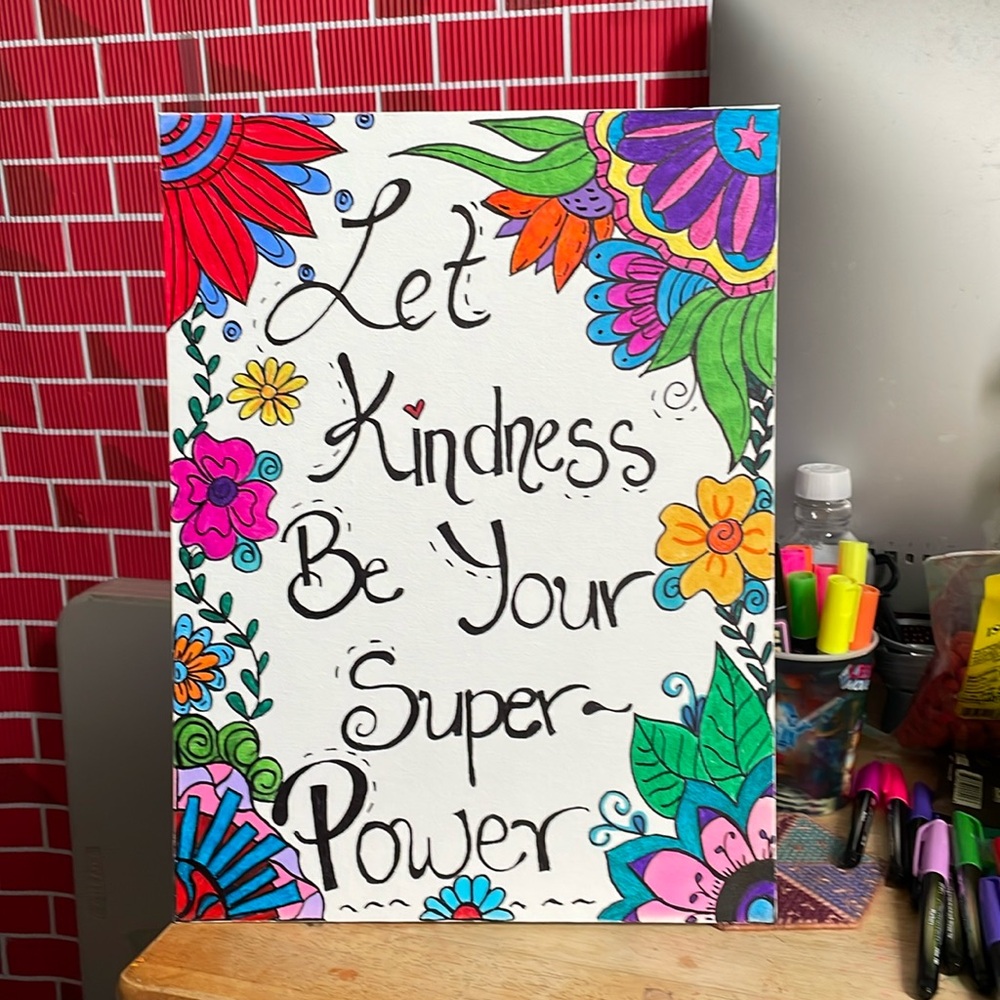 Let
Kindness
Be Your
Super-
Power